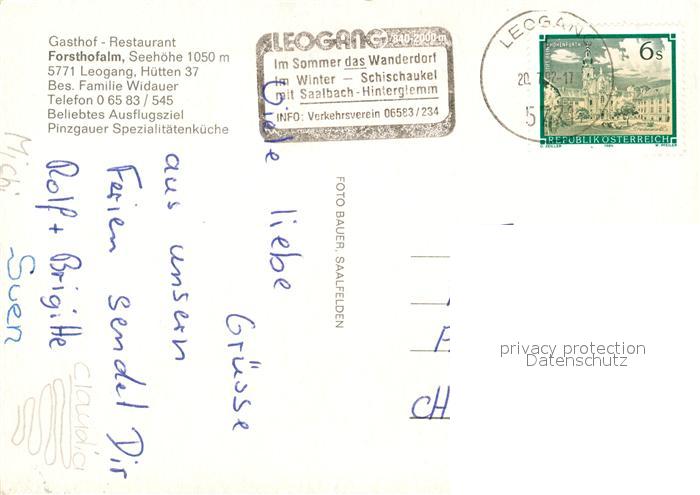 Gasthof - Restaurant
Forsthofalm, Seehöhe 1050 m
5771 Leogang, Hütten 37
Bes. Familie Widauer
Telefon 0 65 83 / 545
Beliebtes Ausflugsziel
Pinzgauer Spezialitätenküche
LEOGANG 840-2000m
Im Sommer das Wanderdorf
im Winter — Schischaukel
mit Saalbach-Hinterglemm
INFO: Verkehrsverein 06583/234
LEOGANG
6s
REPUBLIK ÖSTERREICH
Viele liebe
Grüsse
aus unsern
Ferien sendet Dir
Rolf + Brigitte
Sven
Michi
Claudia
FOTO BAUER, SAALFELDEN
CH
privacy protection
Datenschutz